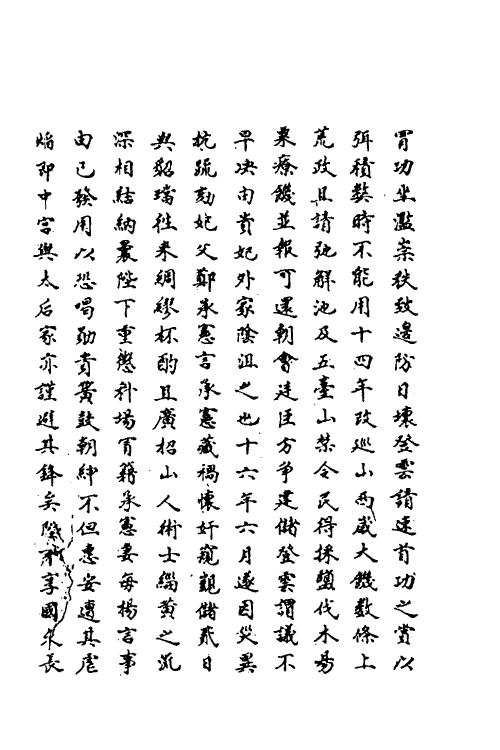 冒功坐濫崇秩致邊防日壞登雲請速首功之賞以
弭積獘時不能用十四年改巡山西歲大饑數條上
荒政且請弛解池及五臺山禁令民得採鹽伐木易
粟療饑並報可還朝會廷臣方爭建儲登雲謂議不
早决由貴妃外家陰沮之也十六年六月遂因災異
抗疏劾妃父鄭承憲言承憲藏禍懷奸窺覬儲貳日
與貂璫往來綢繆杯酌且廣招山人術士緇黄之流
深相結納曩陛下重懲科場冒籍承憲妻每揚言事
由己發用以恐喝勛貴簧鼓朝紳不但惠安遭其虐
焰即中宫與太后家亦謹避其鋒矣陛下享國久長